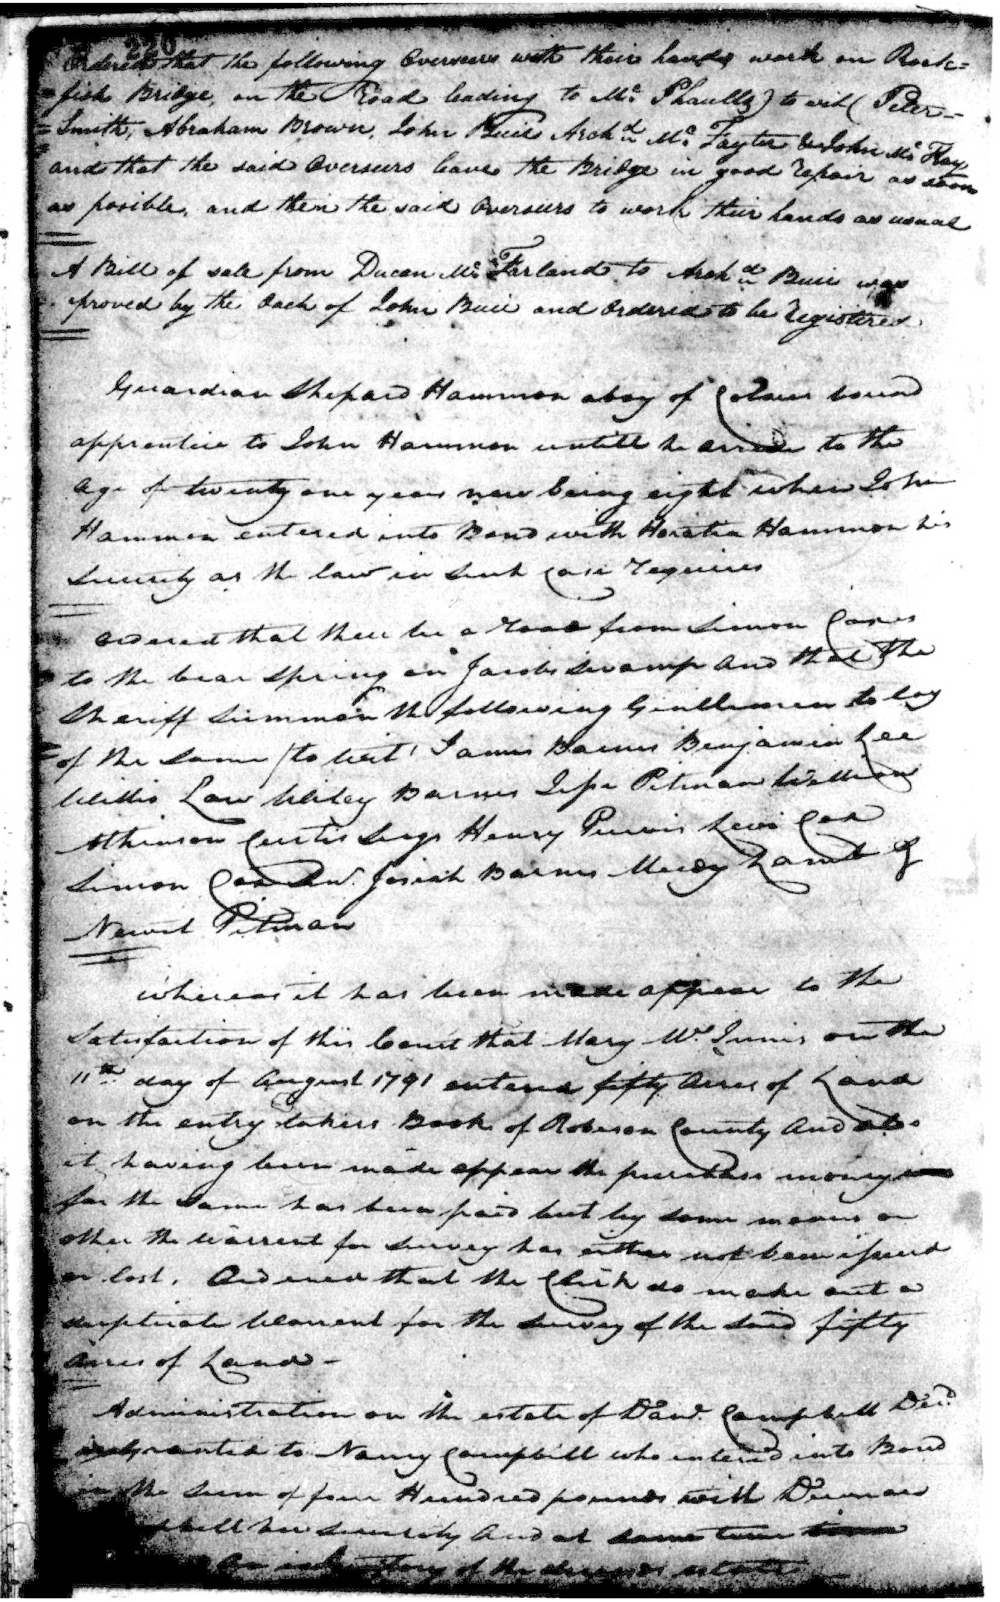 220
Ordered that the following Overseers with their hands work on Rock=
fish Bridge, on the Road leading to Mc Phaulls) to wit ( Peter
Smith, Abraham Brown, John Buie Archd Mc Tayter & John Mc Kay
and that the said Overseers leave the Bridge in good repair as soon
as posible, and then the said Overseers to work their hands as usual
A Bill of sale from Ducan Mc Farland to Archd Buie was
proved by the Oath of John Buie and Ordered to be Registered.
Guardian Shepard Hammon a boy of Colour bound
apprentice to John Hammon untill he arive to the
age of twenty one years now being eight when John
Hammon entered into Bond with Horatia Hammon his
Security as the law in Such Case requires
Ordered that there be a road from Simon Coxes
to the bear Spring on Jacobs swamp And that the
Sheriff Summon the following Gentlemen to lay
of the same (to wit) James Barnes Benjamin Lee
Willis Law Wiley Barnes Jesse Pitman William
Atkinson Curtis Henry Purvis Levi Cox
Simon Cox Josiah Barnes Lamb &
Newit Pitman
whereas it has been made appear to the
Satisfaction of this Court that Mary Mc Innis on the
11th day of August 1791 entered fifty Acres of Land
on the entry takers Book of Robeson County And also
it having been made appear the purchase money
for the Same has been paid but by some means or
other the warrent for Survey has either not been issued
or lost. Ordered that the Clerk do make out a
duplicate Warrent for the Survey of the said fifty
Acres of Land -
Administration on the estate of Danl. Campbell Decd
granted to Nancy Campbell who entered into Bond
in the Sum of four Hundred pounds with Duncan
her Security And at same time
An of the deceased estate